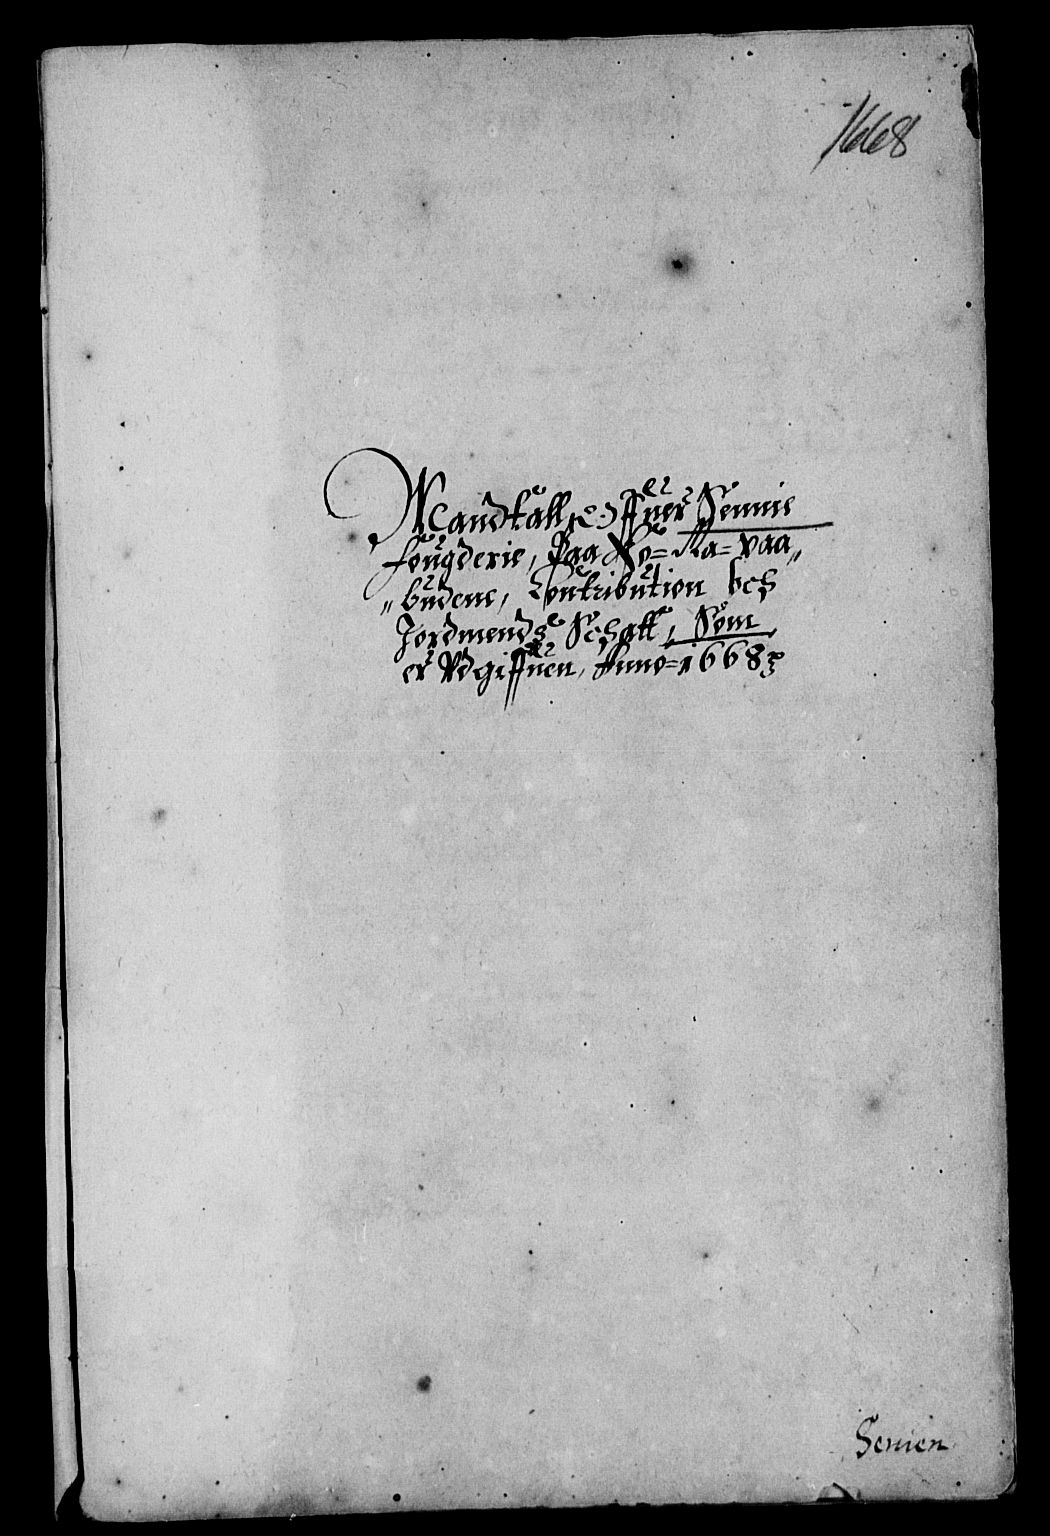 1668
Mandtall Offuer Sennie
fougderie, Paa Ko= Ma= paa„
„budene, Contribution och
Jordmends Schatt, Som
er Vdgiffuen, Anno=1668
Senien